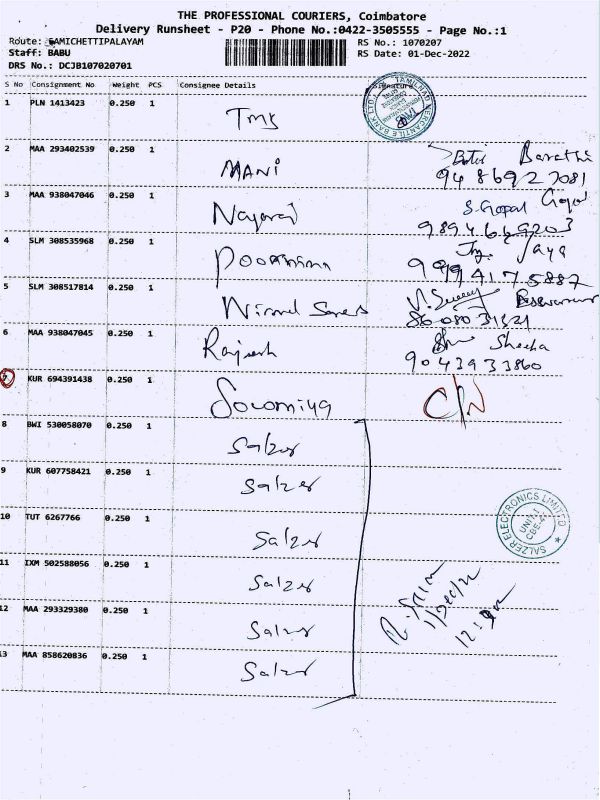 THE PROFESSIONAL COURIERS, Coimbatore
Delivery Runsheet - P20 - Phone No.:0422-3505555 - Page No.:1
Route: SAMICHETTIPALAYAM RS No.: 1070207
Staff: BABU RS Date: 01-Dec-2022
DRS No.: DCJB107020701
S No Consignment No Weight PCS Consignee Details Signature
1 PLN 1413423 0.250 1 TMB
TAMILNAD MERCANTILE BANK LTD
2 MAA 293402539 0.250 1 MANI Barathi
9486927081
3 MAA 938047046 0.250 1 Nagaraj S.Gopal Gopal
9894669203
4 SLM 308535968 0.250 1 Poornima Jaya
9994175887
5 SLM 308517814 0.250 1 Nirmal
8608031621
6 MAA 938047045 0.250 1 Rajesh Sheeba
9043933860
7 KUR 694391438 0.250 1 Sowmiya C/N
8 BWI 530058070 0.250 1 Salzer
9 KUR 607758421 0.250 1 Salzer
SALZER ELECTRONICS LIMITED
UNIT I
CBE-47
10 TUT 6267766 0.250 1 Salzer
11 IXM 502588056 0.250 1 Salzer
1/Dec/22
12 MAA 293329380 0.250 1 Salzer
13 MAA 858620836 0.250 1 Salzer